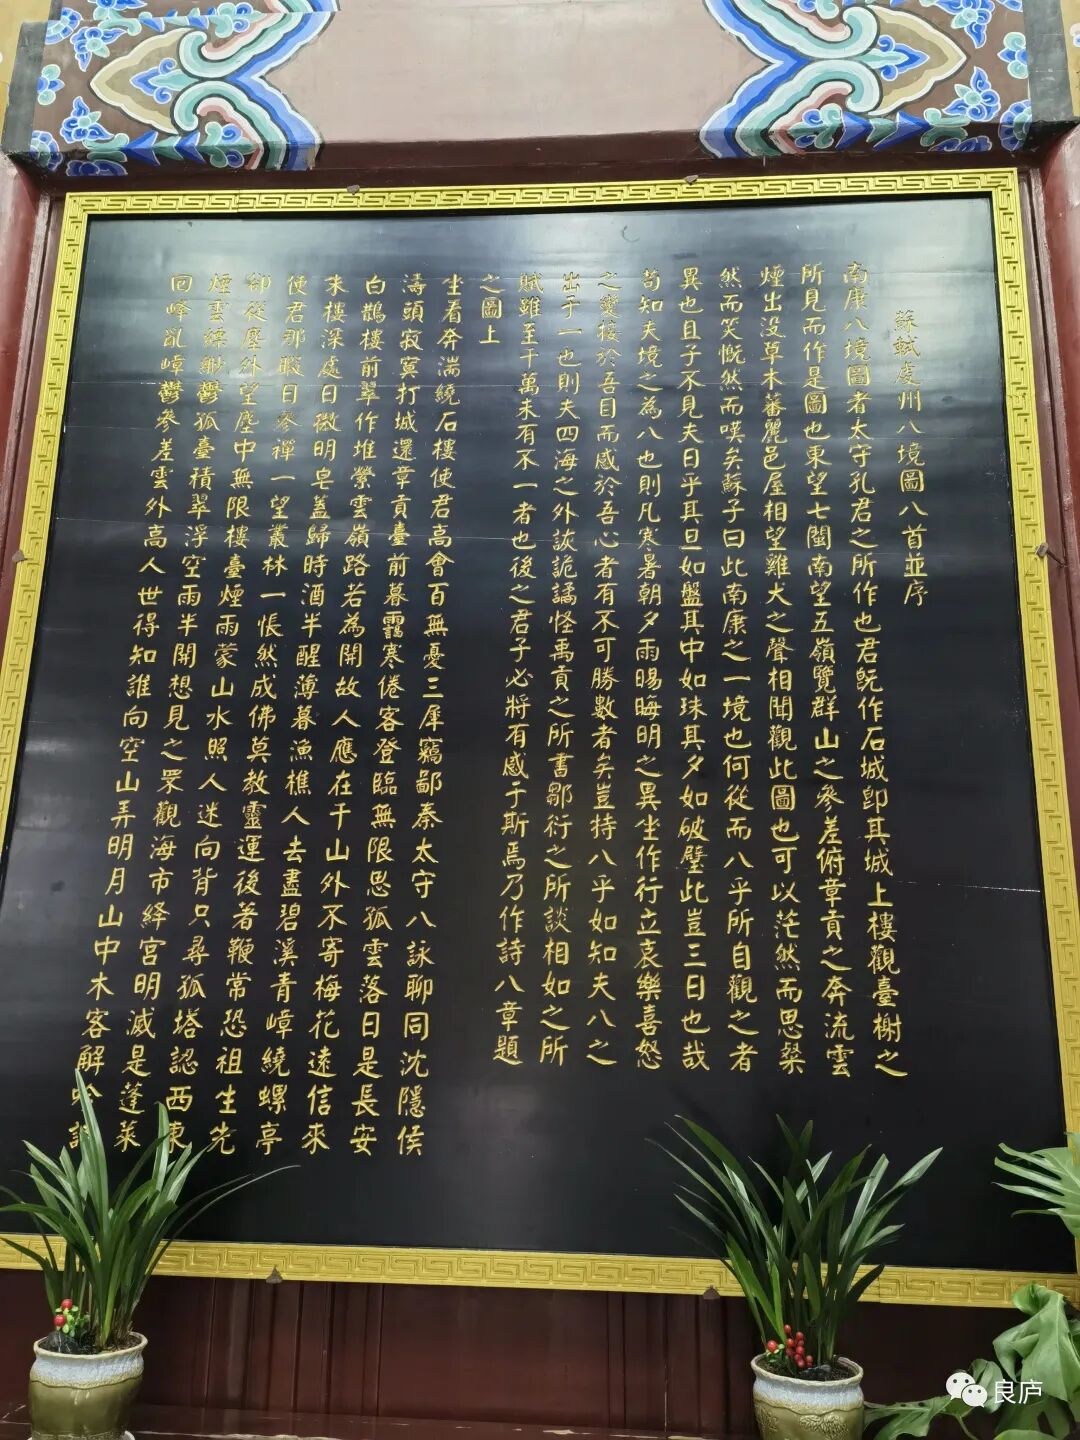 蘇軾虔州八境圖八首並序
南康八境圖者太守孔君之所作也君既作石城即其城上樓觀臺榭之
所見而作是圖也東望七閩南望五嶺覽群山之參差俯章貢之奔流雲
煙出没草木蕃麗邑屋相望雞犬之聲相聞觀此圖也可以茫然而思粲
然而笑慨然而嘆矣蘇子曰此南康之一境也何從而八乎所自觀之者
異也且子不見夫日乎其旦如盤其中如珠其夕如破璧此豈三日也哉
苟知夫境之為八也則凡寒暑朝夕雨暘晦明之異坐作行立哀樂喜怒
之變接於吾目而感於吾心者有不可勝數者矣豈持八乎如知夫八之
出于一也則夫四海之外詼詭譎怪禹貢之所書鄒衍之所談相如之所
賦雖至千萬未有不一者也後之君子必將有感于斯焉乃作詩八章題
之圖上
坐看奔湍繞石樓使君高會百無憂三犀竊鄙秦太守八詠聊同沈隱侯
濤頭寂寞打城還章貢臺前暮靄寒倦客登臨無限思孤雲落日是長安
白鵲樓前翠作堆縈雲嶺路若為開故人應在千山外不寄梅花遠信來
朱樓深處日微明皂蓋歸時酒半醒薄暮漁樵人去盡碧溪青嶂繞螺亭
使君那暇日參禪一望叢林一悵然成佛莫教靈運後著鞭常恐祖生先
卻從塵外望塵中無限樓臺煙雨蒙山水照人迷向背只尋孤塔認西東
煙雲縹緲鬱孤臺積翠浮空雨半開想見之罘觀海市絳宮明滅是蓬萊
回峰亂嶂鬱參差雲外高人世得知誰向空山弄明月山中木客解吟詩
良庐